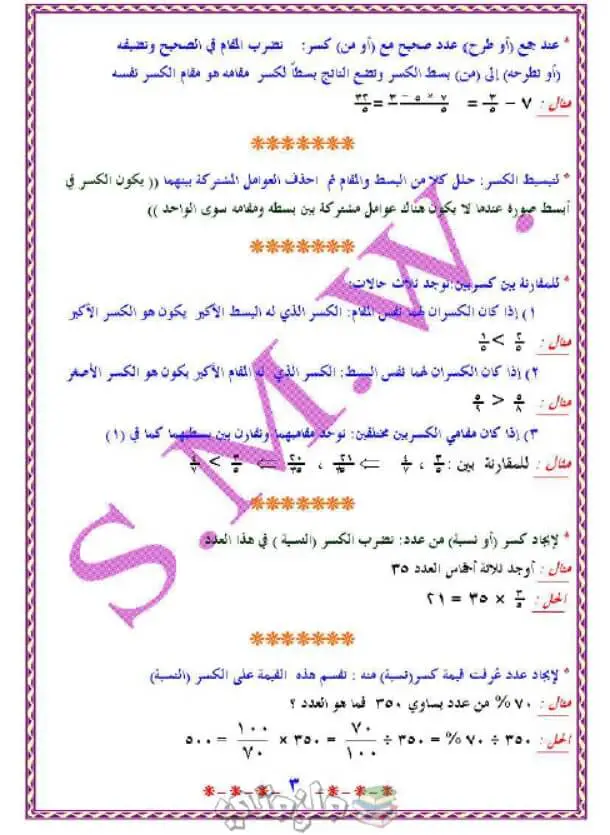 * عند جمع (أو طرح) عدد صحيح مع (أو من) كسر: نضرب المقام في الصحيح ونضيفه
(أو نطرحه) إلى (من) بسط الكسر ونضع الناتج بسطاً لكسر مقامه هو مقام الكسر نفسه
مثال : ٧ − ٣/٥ = ٧ × ٥ − ٣/٥ = ٣٢/٥
*******
* لتبسيط الكسر: حلل كلا من البسط والمقام ثم احذف العوامل المشتركة بينهما (( يكون الكسر في
أبسط صورة عندما لا يكون هناك عوامل مشتركة بين بسطه ومقامه سوى الواحد ))
*******
* للمقارنة بين كسرين: توجد ثلاث حالات:
١) إذا كان الكسران لهما نفس المقام: الكسر الذي له البسط الأكبر يكون هو الكسر الأكبر
مثال : ٢/٥ > ١/٥
٢) إذا كان الكسران لهما نفس البسط: الكسر الذي له المقام الأكبر يكون هو الكسر الأصغر
مثال : ٥/٨ > ٥/٩
٣) إذا كان مقامي الكسرين مختلفين: نوحد مقاميهما ونقارن بين بسطيهما كما في (١)
مثال : للمقارنة بين : ٣/٥ ، ٤/٧ ⇐ ٢١/٣٥ ، ٢٠/٣٥ ⇐ ٣/٥ > ٤/٧
*******
* لإيجاد كسر (أو نسبة) من عدد: نضرب الكسر (النسبة ) في هذا العدد
مثال : أوجد ثلاثة أخماس العدد ٣٥
الحل : ٣/٥ × ٣٥ = ٢١
*******
* لإيجاد عدد عُرفت قيمة كسر(نسبة) منه : نقسم هذه القيمة على الكسر (النسبة)
مثال : ٧٠ % من عدد يساوي ٣٥٠ فما هو العدد ؟
الحل : ٣٥٠ ÷ ٧٠ % = ٣٥٠ ÷ ٧٠/١٠٠ = ٣٥٠ × ١٠٠/٧٠ = ٥٠٠
*-*-*- ٣ -*-*-*
S.M.W.